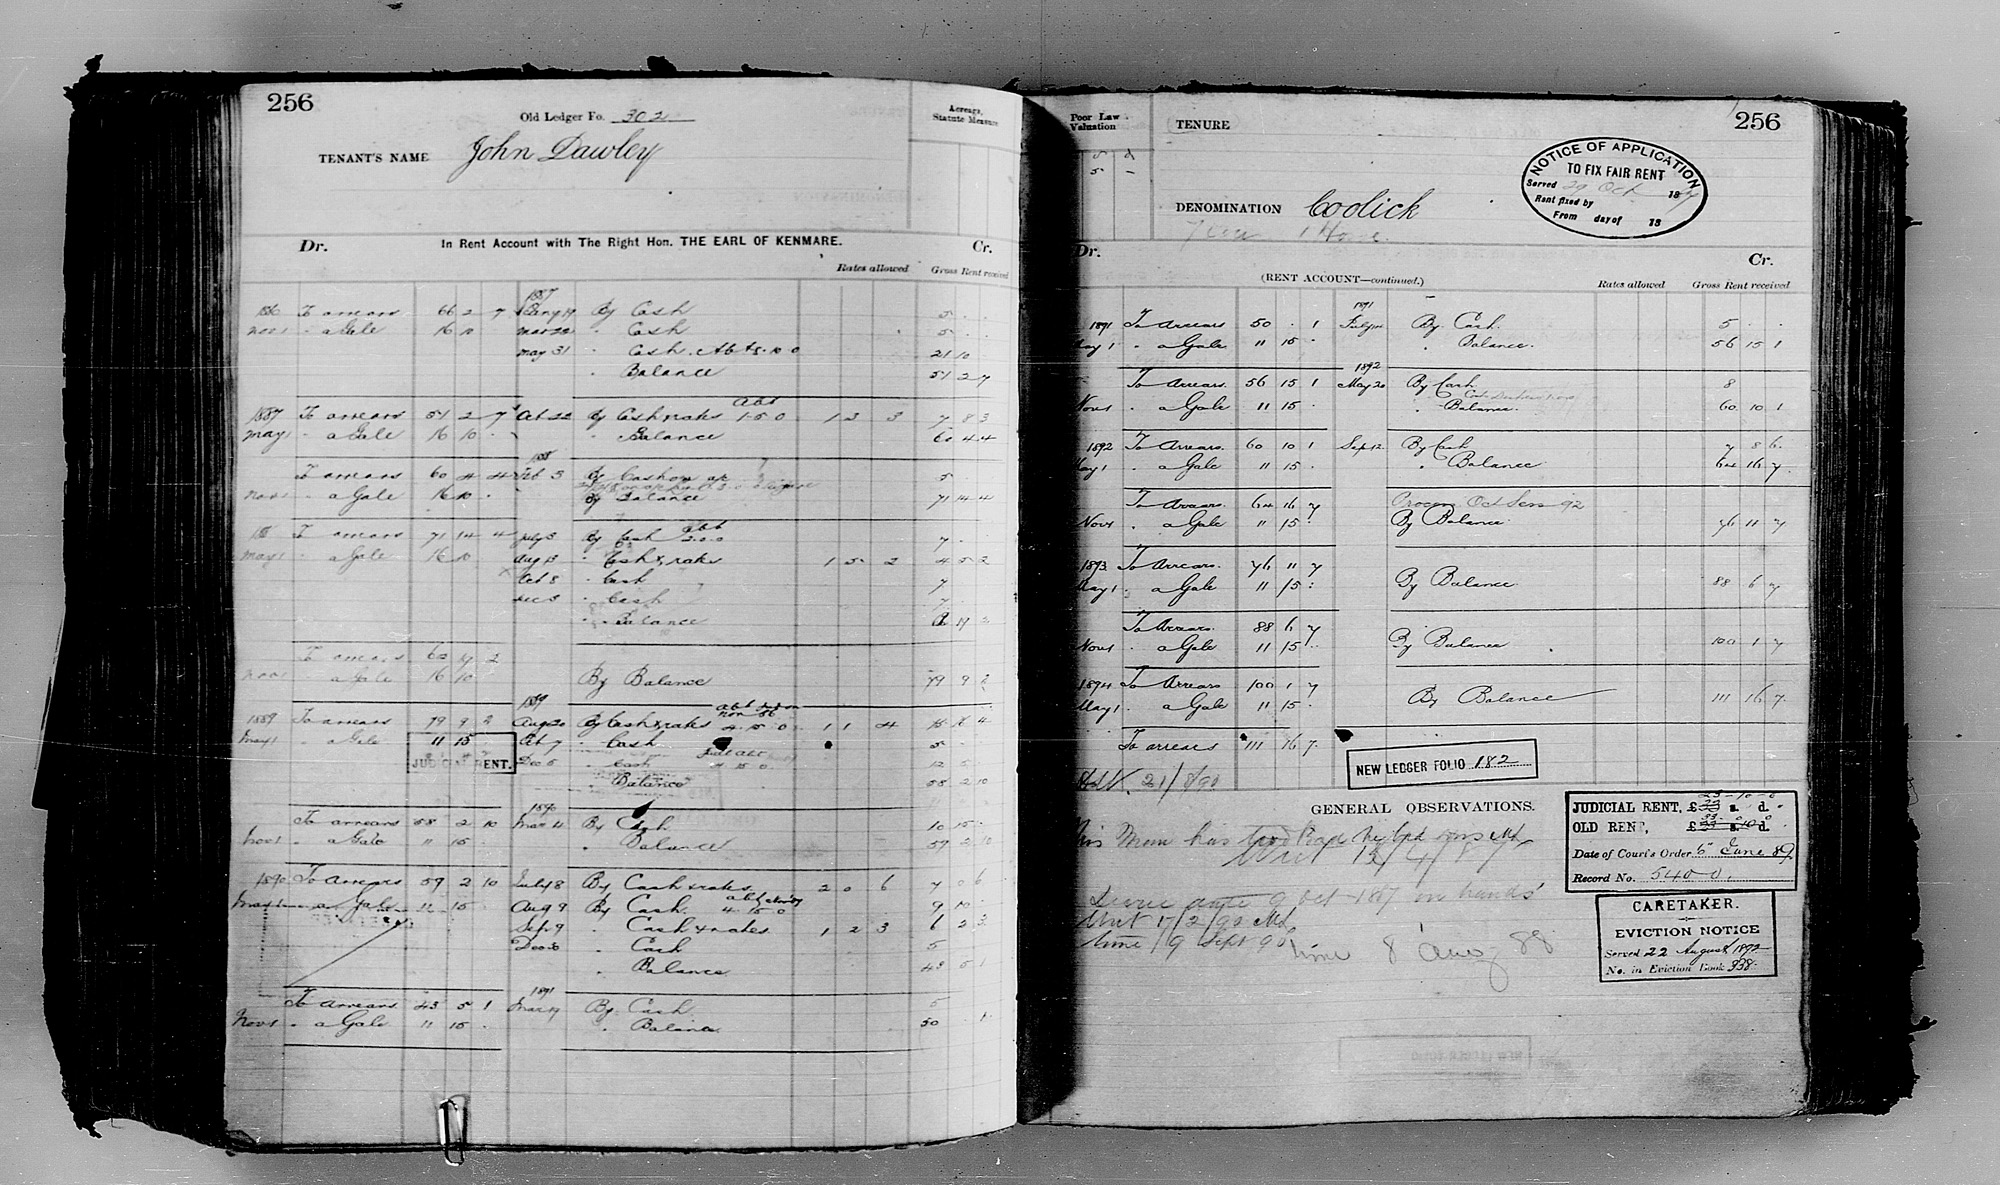 256
Old Ledger Fo. 302
Acreage, Statute Measure
TENANT'S NAME John Dawley
Dr. In Rent Account with The Right Hon. THE EARL OF KENMARE. Cr.
Rates allowed Gross Rent received
1887
To arrears 66 2 7 By Cash 5 . .
Nov 1 " a Gale 16 10 Mar 22 " Cash 5 . .
May 31 " Cash Abt 5.10.0 21 10
" Balance 51 2 7
1887 To arrears 51 2 7 Oct 22 By Cash & rates Abt 1.5.0 1 3 3 7 8 3
May 1 " a Gale 16 10 . " Balance 60 4 4
1888
To arrears 60 4 4 Feb 3 By Cash on ap 5 .
Nov 1 " a Gale 16 10 . By Balance 71 14 4
To arrears 71 14 4 July 3 By Cash abt 2.0.0 7 .
May 1 " a Gale 16 10 Aug 13 " Cash & rates 1 5 2 4 5 2
Oct 8 " Cash 7
Dec 3 " Cash 7
" Balance 19 2
To arrears 62 19 2
Nov 1 " a Gale 16 10 By Balance 79 9 2
1889
1889 To arrears 79 9 2 Aug 20 By Cash & rates 4.15.0 1 1 4 4
May 1 " a Gale 11 15 Oct 7 " Cash 5
JUDICIAL RENT. Dec 5 " Cash 4 15 0 12 5
" Balance 58 2 10
1890
To arrears 58 2 10 Mar 4 By Cash 10 15
Nov 1 " a Gale 11 15 " Balance 59 2 10
1890 To arrears 59 2 10 July 8 By Cash & rates 2 0 6 7 0 6
May 1 " a Gale 11 15 Aug 9 By Cash 4 15 0 9 10
Sep 9 " Cash & rates 1 2 3 6 2 3
Dec 6 " Cash 5
" Balance 43 5 1
1891
To arrears 43 5 1 Mar 19 By Cash 5
Nov 1 " a Gale 11 15 . " Balance 50 . 1
256
Poor Law Valuation
TENURE
5 -
NOTICE OF APPLICATION
TO FIX FAIR RENT
Served 29 Oct 1887
Rent fixed by
From day of 18
DENOMINATION Coolick
1 House
Dr. Cr.
(RENT ACCOUNT—continued.)
Rates allowed Gross Rent received
1891
1891 To Arrears 50 . 1 July 14 By Cash 5 . .
May 1 " a Gale 11 15 . " Balance. 56 15 1
1892
To Arrears. 56 15 1 May 20 By Cash 8
Nov 1 " a Gale 11 15 . " Balance. 60 10 1
1892 To Arrears. 60 10 1 Sep 12 By Cash 7 8 6
May 1 " a Gale 11 15 . " Balance 64 16 7
To Arrears. 64 16 7 Process Oct Sess 92
Nov 1 " a Gale 11 15 By Balance 76 11 7
1893 To Arrears. 76 11 7
May 1 " a Gale 11 15 By Balance 88 6 7
To Arrears. 88 6 7 By Balance 100 1 7
Nov 1 " a Gale 11 15
1894 To Arrears 100 1 7 By Balance 111 16 7
May 1 " a Gale 11 15
To arrears 111 16 7
NEW LEDGER FOLIO 182
21/8/90
GENERAL OBSERVATIONS.
This Man has two
Writ 12/4/87
9 Oct 1887 in hands
Writ 17/2/90
time 19 Sept 90 time 8 Aug 88
23-10-0
JUDICIAL RENT, £ s. d.
33 0 0
OLD RENT, £ s. d.
Date of Court's Order 6th June 89
Record No. 5400.
CARETAKER.
EVICTION NOTICE
Served 22 August 1892
No. in Eviction Book 338